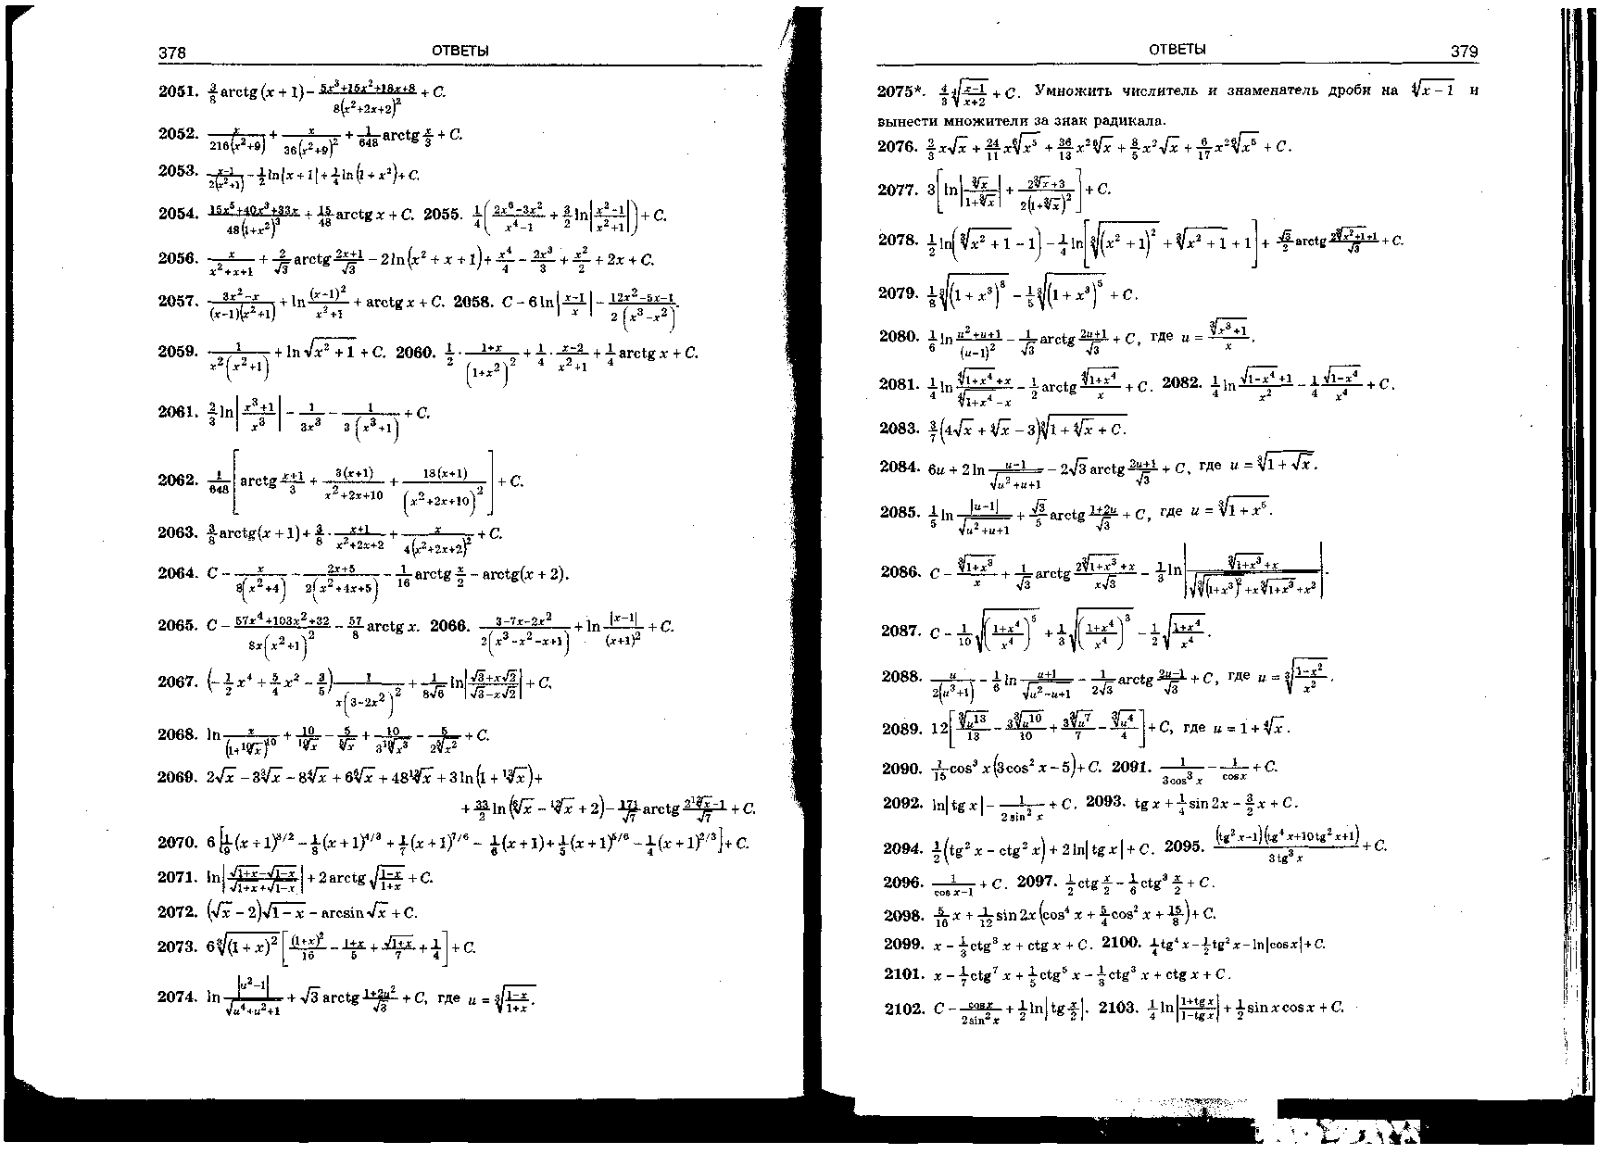 378 ОТВЕТЫ
2051. 3/8 arctg (x + 1) – (5x³+15x²+18x+8)/(8(x²+2x+2)²) + C.
2052. x/(216(x²+9)) + x/(36(x²+9)²) + 1/648 arctg x/3 + C.
2053. (x–1)/(2(x²+1)) – 1/2 ln|x + 1| + 1/4 ln(1 + x²) + C.
2054. (15x⁵+40x³+33x)/(48(1+x²)³) + 15/48 arctg x + C. 2055. 1/4((2x⁶–3x²)/(x⁴–1) + 3/2 ln|(x²–1)/(x²+1)|) + C.
2056. x/(x²+x+1) + 2/√3 arctg (2x+1)/√3 – 2 ln(x² + x + 1) + x⁴/4 – 2x³/3 + x²/2 + 2x + C.
2057. (3x²–x)/((x–1)(x²+1)) + ln (x–1)²/(x²+1) + arctg x + C. 2058. C – 6 ln|(x–1)/x| – (12x²–5x–1)/(2(x³–x²)).
2059. 1/(x²(x²+1)) + ln √(x² + 1) + C. 2060. 1/2 · (1+x)/(1+x²)² + 1/4 · (x–2)/(x²+1) + 1/4 arctg x + C.
2061. 2/3 ln|(x³+1)/x³| – 1/(3x³) – 1/(3(x³+1)) + C.
2062. 1/648 [arctg (x+1)/3 + 3(x+1)/(x²+2x+10) + 18(x+1)/(x²+2x+10)²] + C.
2063. 3/8 arctg(x + 1) + 3/8 · (x+1)/(x²+2x+2) + x/(4(x²+2x+2)²) + C.
2064. C – x/(8(x²+4)) – (2x+5)/(2(x²+4x+5)) – 1/16 arctg x/2 – arctg(x + 2).
2065. C – (57x⁴+103x²+32)/(8x(x²+1)²) – 57/8 arctg x. 2066. (3–7x–2x²)/(2(x³–x²–x+1)) + ln |x–1|/(x+1)² + C.
2067. (–1/2 x⁴ + 5/4 x² – 3/5) 1/(x(3–2x²)²) + 1/(8√6) ln|(√3+x√2)/(√3–x√2)| + C.
2068. ln x/(1+¹⁰√x)¹⁰ + 10/¹⁰√x – 5/⁵√x + 10/(3¹⁰√x³) – 5/(2⁵√x²) + C.
2069. 2√x – 3∛x – 8∜x + 6⁶√x + 48¹²√x + 3 ln(1 + ¹²√x) +
+ 33/2 ln(⁶√x – ¹²√x + 2) – 171/√7 arctg (2¹²√x–1)/√7 + C.
2070. 6[1/9 (x + 1)^(3/2) – 1/8 (x + 1)^(4/3) + 1/7 (x + 1)^(7/6) – 1/6 (x + 1) + 1/5 (x + 1)^(5/6) – 1/4 (x + 1)^(2/3)] + C.
2071. ln|(√(1+x)–√(1–x))/(√(1+x)+√(1–x))| + 2 arctg √((1–x)/(1+x)) + C.
2072. (√x – 2)√(1 – x) – arcsin √x + C.
2073. 6∛((1 + x)²)[(1+x)²/16 – (1+x)/5 + √(1+x)/7 + 1/4] + C.
2074. ln |u²–1|/√(u⁴+u²+1) + √3 arctg (1+2u²)/√3 + C, где u = ∛((1–x)/(1+x)).
ОТВЕТЫ 379
2075*. 4/3 ∜((x–1)/(x+2)) + C. Умножить числитель и знаменатель дроби на ∜(x – 1) и
вынести множители за знак радикала.
2076. 2/3 x√x + 24/11 x⁶√x⁵ + 36/13 x²⁶√x + 8/5 x²√x + 6/17 x²⁶√x⁵ + C.
2077. 3[ln|∛x/(1+∛x)| + (2∛x+3)/(2(1+∛x)²)] + C.
2078. 1/2 ln(∛(x² + 1) – 1) – 1/4 ln[∛((x² + 1)²) + ∛(x² + 1) + 1] + √3/2 arctg (2∛(x²+1)+1)/√3 + C.
2079. 1/8 ∛((1 + x³)⁸) – 1/5 ∛((1 + x³)⁵) + C.
2080. 1/6 ln (u²+u+1)/(u–1)² – 1/√3 arctg (2u+1)/√3 + C, где u = ∛(x³+1)/x.
2081. 1/4 ln (∜(1+x⁴)+x)/(∜(1+x⁴)–x) – 1/2 arctg ∜(1+x⁴)/x + C. 2082. 1/4 ln (√(1–x⁴)+1)/x² – 1/4 √(1–x⁴)/x⁴ + C.
2083. 3/7 (4√x + ∜x – 3)∛(1 + ∜x) + C.
2084. 6u + 2 ln (u–1)/√(u²+u+1) – 2√3 arctg (2u+1)/√3 + C, где u = ∛(1 + √x).
2085. 1/5 ln |u–1|/√(u²+u+1) + √3/5 arctg (1+2u)/√3 + C, где u = ∛(1 + x⁵).
2086. C – ∛(1+x³)/x + 1/√3 arctg (2∛(1+x³)+x)/(x√3) – 1/3 ln|(∛(1+x³)+x)/√(∛((1+x³)²)+x∛(1+x³)+x²)|.
2087. C – 1/10 √(((1+x⁴)/x⁴)⁵) + 1/3 √(((1+x⁴)/x⁴)³) – 1/2 √((1+x⁴)/x⁴).
2088. u/(2(u³+1)) – 1/6 ln (u+1)/√(u²–u+1) – 1/(2√3) arctg (2u–1)/√3 + C, где u = ∛((1–x²)/x²).
2089. 12[∛u¹³/13 – 3∛u¹⁰/10 + 3∛u⁷/7 – ∛u⁴/4] + C, где u = 1 + ∜x.
2090. 1/15 cos³ x(3cos² x – 5) + C. 2091. 1/(3cos³ x) – 1/cos x + C.
2092. ln|tg x| – 1/(2sin² x) + C. 2093. tg x + 1/4 sin 2x – 3/2 x + C.
2094. 1/2 (tg² x – ctg² x) + 2 ln|tg x| + C. 2095. (tg² x–1)(tg⁴ x+10tg² x+1)/(3tg³ x) + C.
2096. 1/(cos x–1) + C. 2097. 1/2 ctg x/2 – 1/6 ctg³ x/2 + C.
2098. 5/16 x + 1/12 sin 2x(cos⁴ x + 5/4 cos² x + 15/8) + C.
2099. x – 1/3 ctg³ x + ctg x + C. 2100. 1/4 tg⁴ x – 1/2 tg² x – ln|cos x| + C.
2101. x – 1/7 ctg⁷ x + 1/5 ctg⁵ x – 1/3 ctg³ x + ctg x + C.
2102. C – cos x/(2sin² x) + 1/2 ln|tg x/2|. 2103. 1/4 ln|(1+tg x)/(1–tg x)| + 1/2 sin x cos x + C.